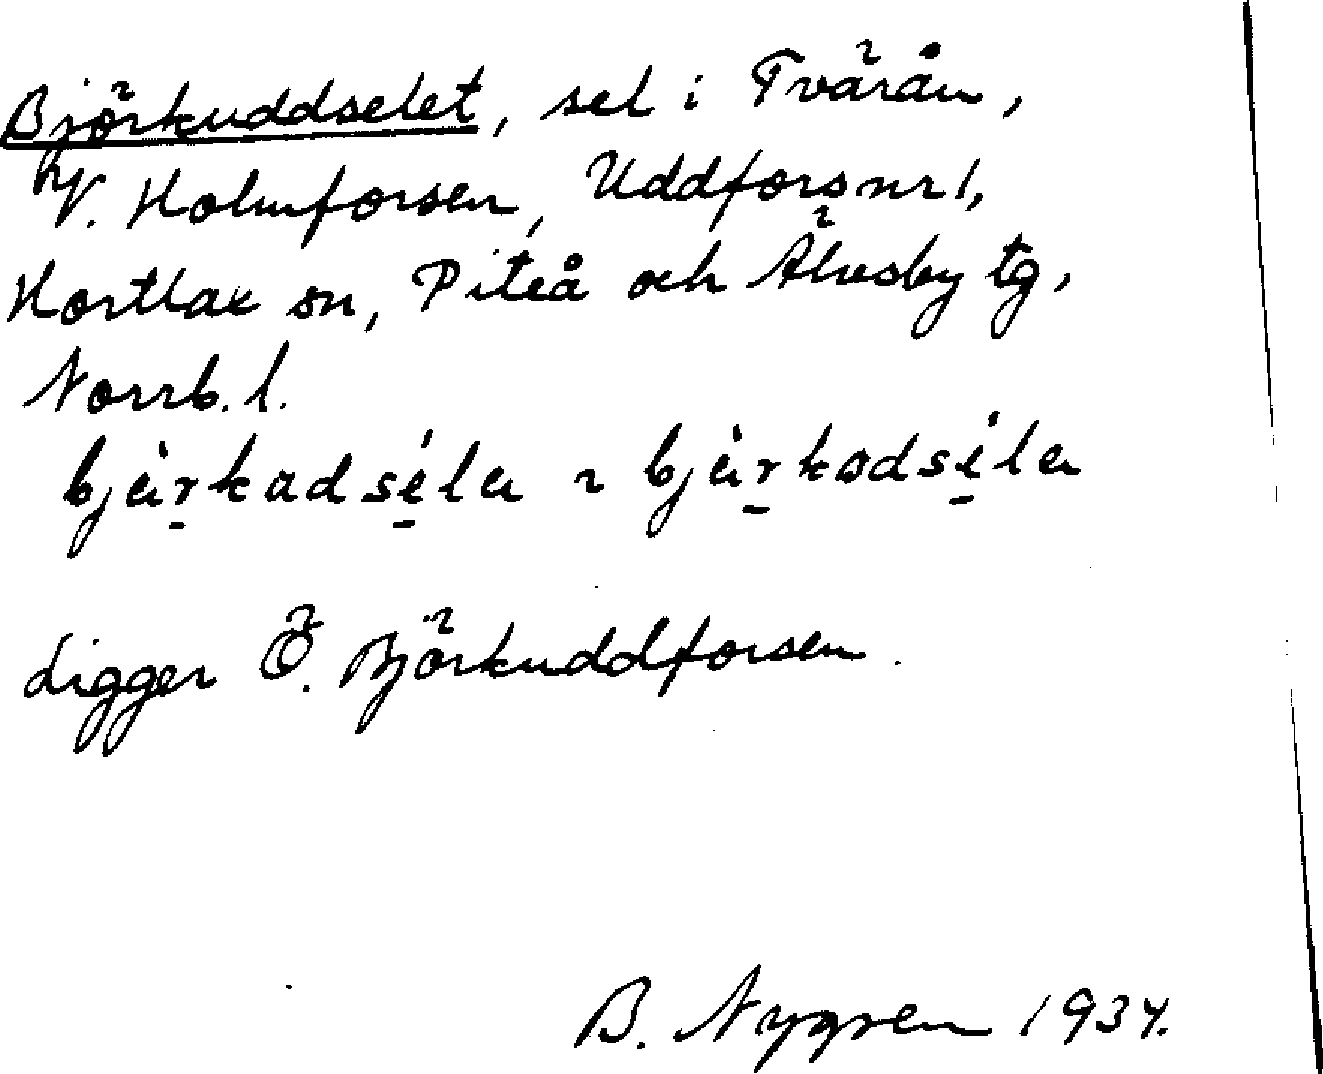 Björkuddselet, sel i Tvärån,
V. Holmforsen, Uddfors nr 1,
Hortlax sn, Piteå och Älvsby tg,
Norrb. l.
bjàrkadséla ~ bjàrkodséla
Ligger Ö. Björkuddforsen.
B. Nygren 1934.